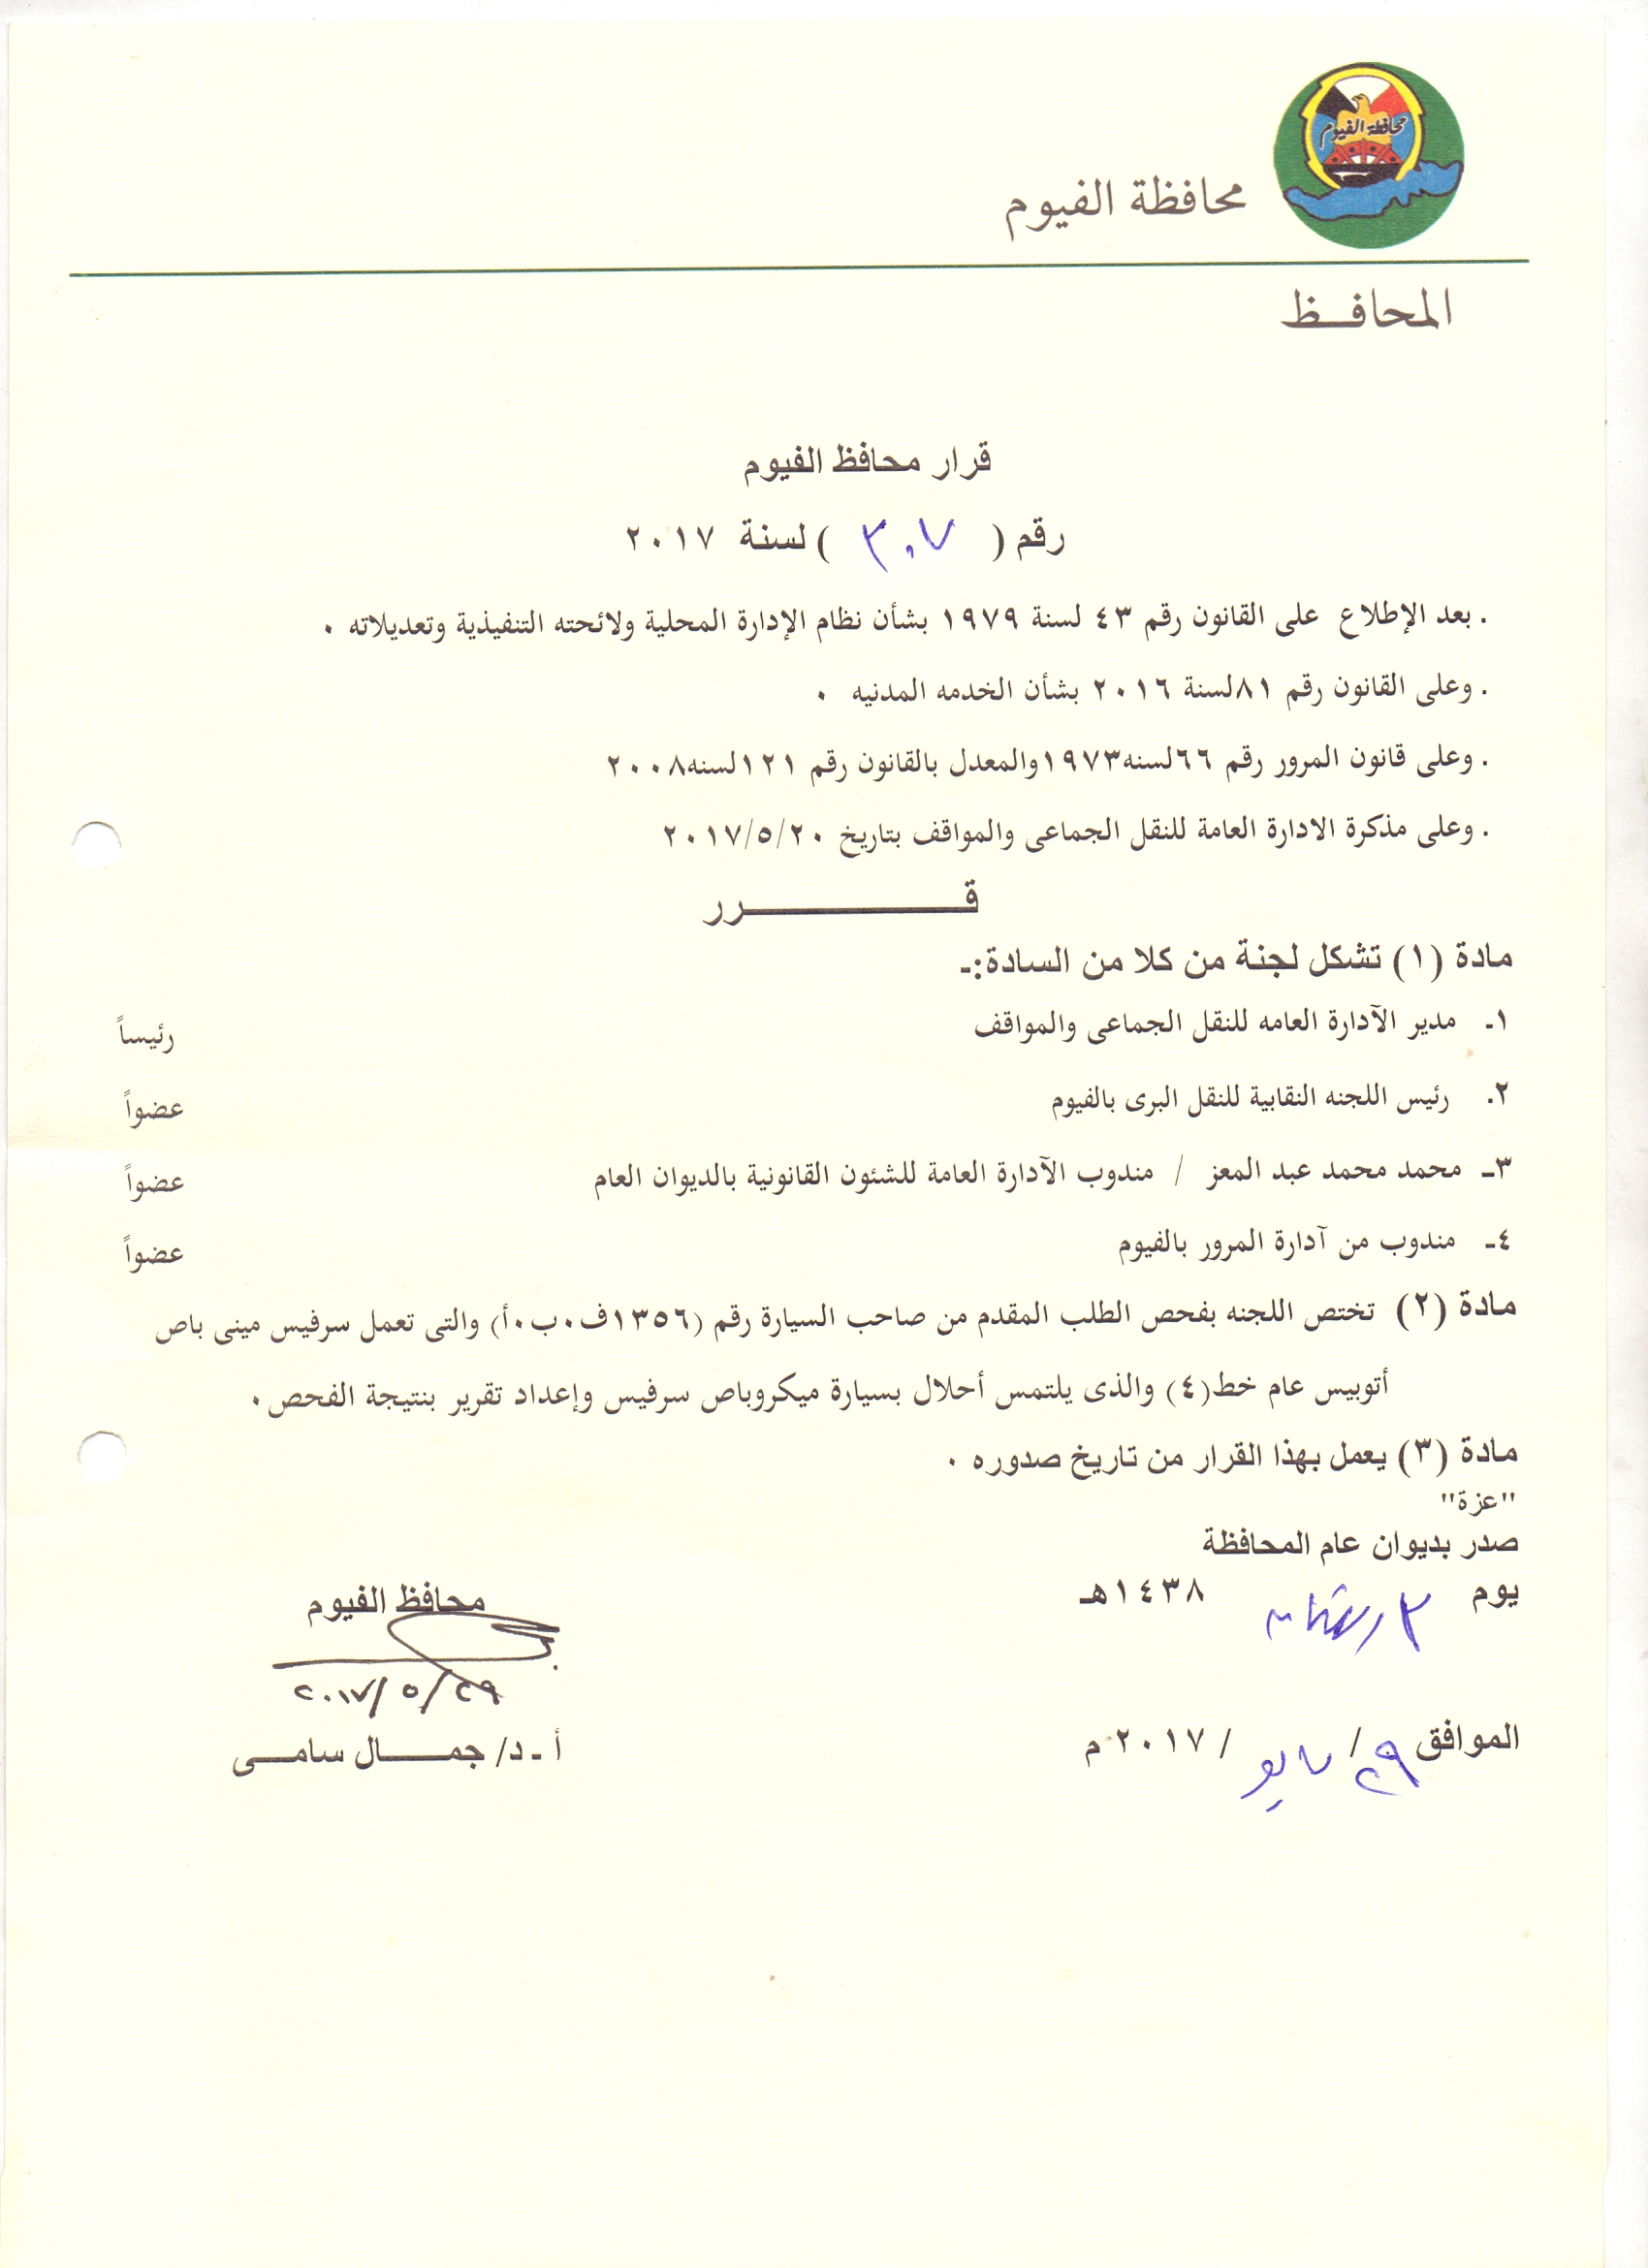 محافظة الفيوم
محافظة الفيوم
المحافــظ
قرار محافظ الفيوم
رقم ( ٣٠٧ ) لسنة ٢٠١٧
. بعد الإطلاع على القانون رقم ٤٣ لسنة ١٩٧٩ بشأن نظام الإدارة المحلية ولائحته التنفيذية وتعديلاته ٠
. وعلى القانون رقم ٨١لسنة ٢٠١٦ بشأن الخدمه المدنيه ٠
. وعلى قانون المرور رقم ٦٦لسنه١٩٧٣والمعدل بالقانون رقم ١٢١لسنه٢٠٠٨
. وعلى مذكرة الادارة العامة للنقل الجماعى والمواقف بتاريخ ٢٠١٧/٥/٢٠
قـــــــــــــرر
مادة (١) تشكل لجنة من كلا من السادة:ـ
١ـ مدير الآدارة العامه للنقل الجماعى والمواقف رئيساً
٢. رئيس اللجنه النقابية للنقل البرى بالفيوم عضواً
٣ـ محمد محمد عبد المعز / مندوب الآدارة العامة للشئون القانونية بالديوان العام عضواً
٤ـ مندوب من آدارة المرور بالفيوم عضواً
مادة (٢) تختص اللجنه بفحص الطلب المقدم من صاحب السيارة رقم (١٣٥٦ف٠ب٠أ) والتى تعمل سرفيس مينى باص
أتوبيس عام خط(٤) والذى يلتمس أحلال بسيارة ميكروباص سرفيس وإعداد تقرير بنتيجة الفحص٠
مادة (٣) يعمل بهذا القرار من تاريخ صدوره ٠
"عزة"
صدر بديوان عام المحافظة
يوم ٣ رمضان ١٤٣٨هـ
الموافق ٢٩ / مايو / ٢٠١٧ م
محافظ الفيوم
٢٠١٧/٥/٢٩
أ ـ د/ جمــــال سامــى